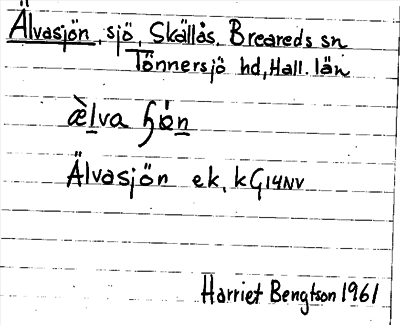 Älvasjön, sjö, Skällås, Breareds sn
Tönnersjö hd, Hall. län
æ̀lva ɧö́n
Älvasjön ek, kG14NV
Harriet Bengtson 1961